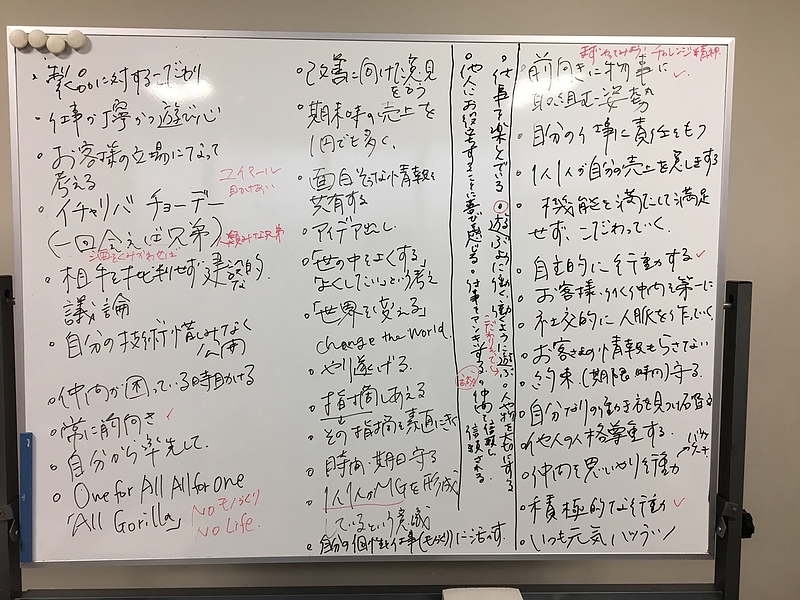 製品に対するこだわり
仕事が丁寧かつ遊び心
お客様の立場になって
考える
ユイマール
助けあい
イチャリバ チョーデー
(一回会えば兄弟)
人類みな兄弟
酒をくみかわせば
相手を批判せず建設的
な
議論
自分の技術惜しみなく
公開
仲間が困っている時助ける
常に前向き
自分から率先して.
One for All All for one
「All Gorilla」
NO モノづくり
NO Life.
改善に向けた意見
をもらう
期末時の売上を
1円でも多く.
面白そうな情報を
共有する
アイデア出し
「世の中をよくする」
よくしたいという考え
「世界を変える」
change the world.
やり遂げる.
指摘しあえる
その指摘を素直にきく
時間、期日守る
1人1人がMGを形成
しているという意識
自分の個性を仕事(モノづくり)に活かす.
仕事を楽しんでいる
遊ぶように働く、働くように遊ぶ
人や物を大切にする
他人にお役立ちすることに喜びを感じる
仲間を信頼し
信頼される
まずやってみよう! チャレンジ精神
前向きに物事に
取り組む姿勢
自分の仕事に責任をもつ
1人1人が自分の売上を意識する
機能を満たして満足
せず、こだわっていく.
自主的に行動する
お客様、仲間を第一に
社交的に人脈を作っていく
お客さまの情報もらさない
約束(期限時間)守る.
自分なりの働き方を見つけ
他人の人格尊重する.
仲間を思いやり行動
積極的な行動
いつも元気ハツラツ!